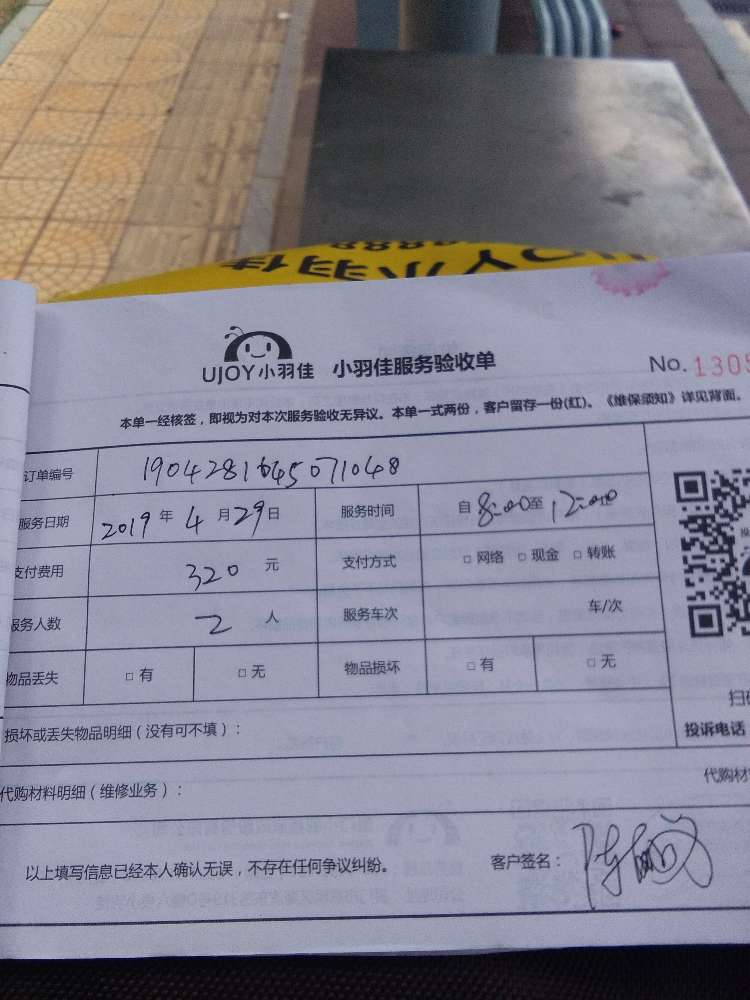 UJOY小羽佳
UJOY小羽佳 小羽佳服务验收单 No. 1305
本单一经核签，即视为对本次服务验收无异议。本单一式两份，客户留存一份(红)。《维保须知》详见背面。
订单编号 1904281645071048
服务日期 2019 年 4 月 29 日 服务时间 自 8:00 至 12:00
支付费用 320 元 支付方式 □ 网络 □ 现金 □ 转账
服务人数 2 人 服务车次 车/次
物品丢失 □ 有 □ 无 物品损坏 □ 有 □ 无
扫
损坏或丢失物品明细（没有可不填）： 投诉电话
代购材料明细（维修业务）： 代购材
以上填写信息已经本人确认无误，不存在任何争议纠纷。 客户签名：